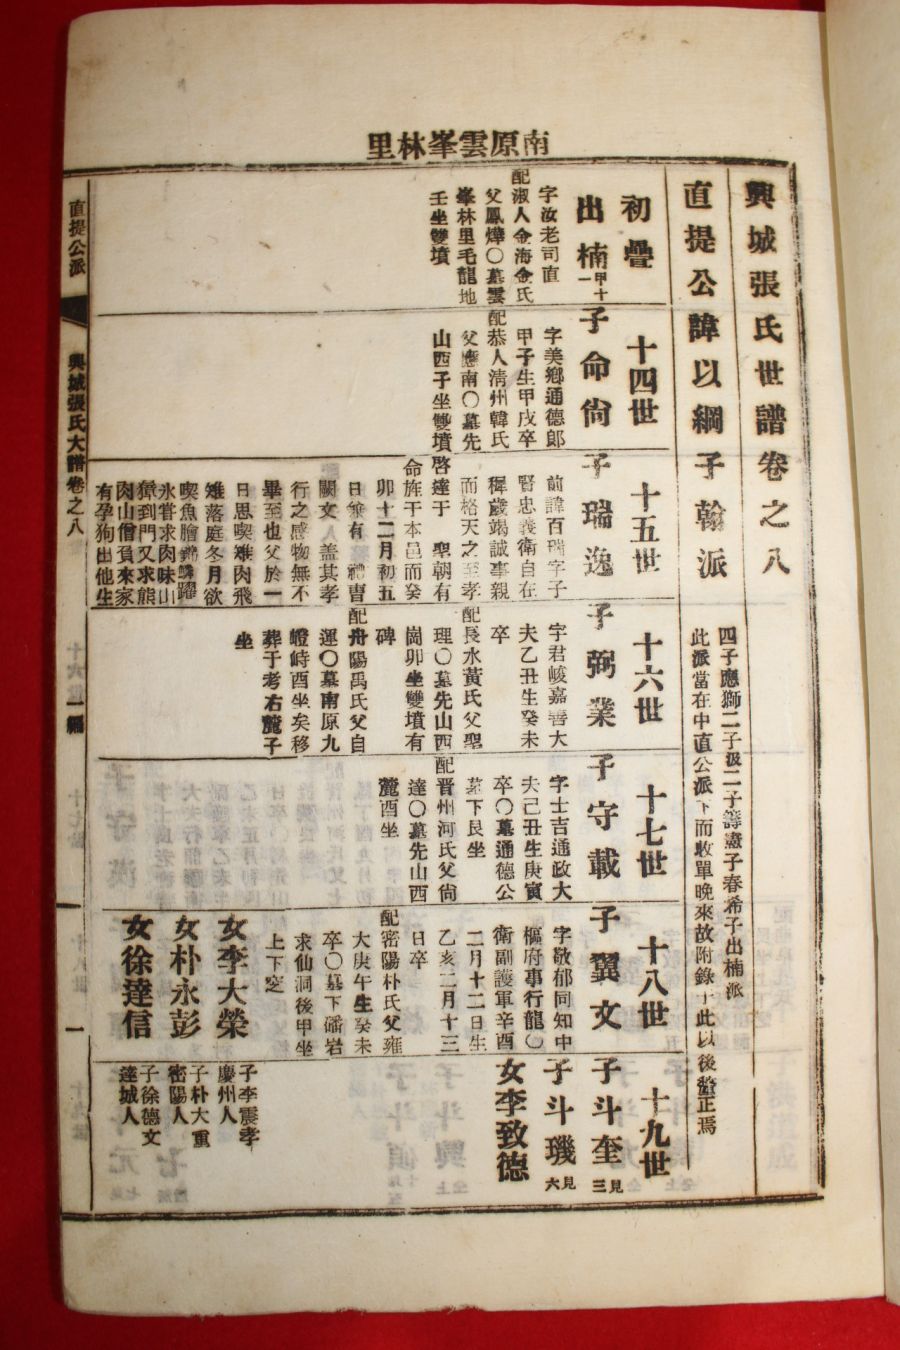 南原雲峯林里
興城張氏世譜卷之八
直提公諱以綱子翰派
四子應獅二子汲二子籌燾子春希子出楠派
此派當在中直公派下而收單晚來故附錄于此以後釐正焉
初疊
出楠
甲十一
字汝老司直
配淑人金海金氏
父鳳燁〇墓雲
峯林里毛龍地
壬坐雙墳
十四世
子命尙
字美鄕通德郞
甲子生甲戌卒
配恭人淸州韓氏
父應南〇墓先
山酉子坐雙墳
十五世
子瑞逸
前諱百瑞字子
賢忠義衛自在
穉歲竭誠事親
而格天之至孝
啓達于 聖朝有
命旌于本邑而癸
卯十二月初五
日無有 禮曹
關文 蓋其孝
行之感物無不
畢至也父於一
日思喫雉肉飛
雉落庭冬月欲
喫魚膾鱗躍
氷嘗求肉味山
獐到門又求熊
肉山僧負來家
有孕狗出他生
十六世
子弼業
字君峻嘉善大
夫乙丑生癸未
卒
配長水黃氏父聖
理〇墓先山酉
崗卯坐雙墳有
碑
配丹陽禹氏父自
運〇墓南原九
嶝峙酉坐矣移
葬于考右麓子
坐
十七世
子守載
字士吉通政大
夫己丑生庚寅
卒〇墓通德公
墓下艮坐
配晋州河氏父尙
達〇墓先山西
麓酉坐
十八世
子翼文
字敬郁同知中
樞府事行龍〇
衛副護軍辛酉
二月十二日生
乙亥二月十三
日卒
配密陽朴氏父雍
大庚午生癸未
卒〇墓下磻岩
求仙洞後甲坐
上下窆
女李大榮
女朴永彭
女徐達信
十九世
子斗奎
見三
子斗璣
見六
女李致德
子李震孝
慶州人
子朴大重
密陽人
子徐德文
達城人
直提公派
興城張氏大譜卷之八
一編
一